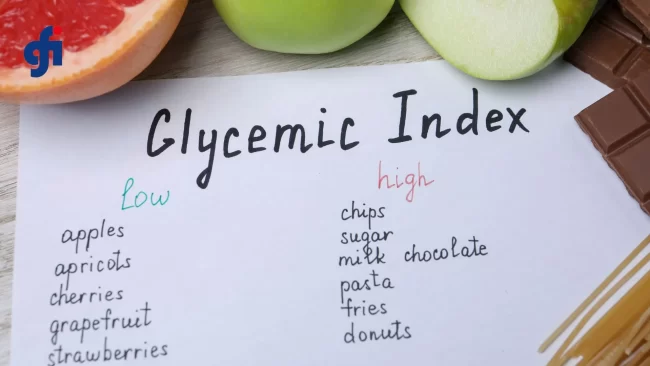 gfi
Glycemic Index
low
apples
apricots
cherries
grapefruit
strawberries
high
chips
sugar
milk chocolate
pasta
fries
donuts